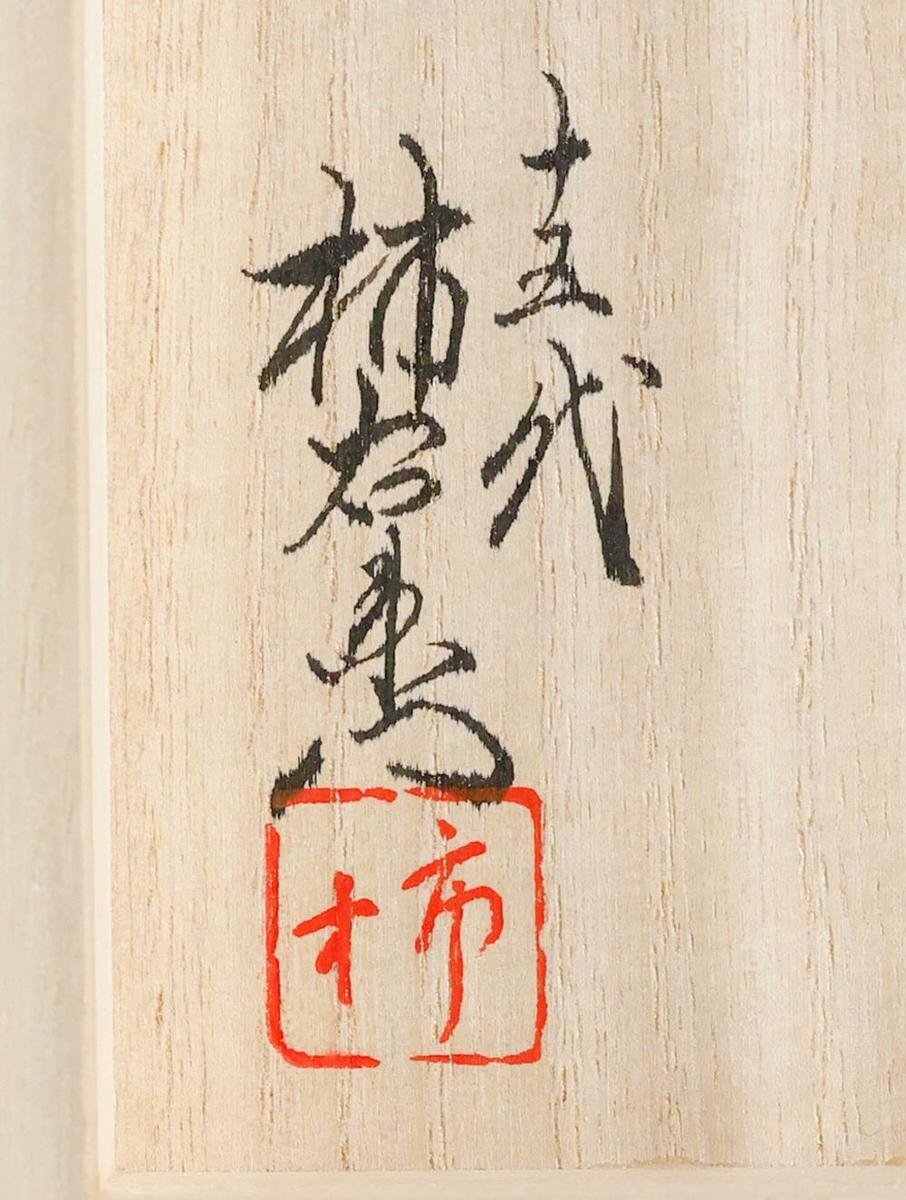 十五代
柿右衛門
柿